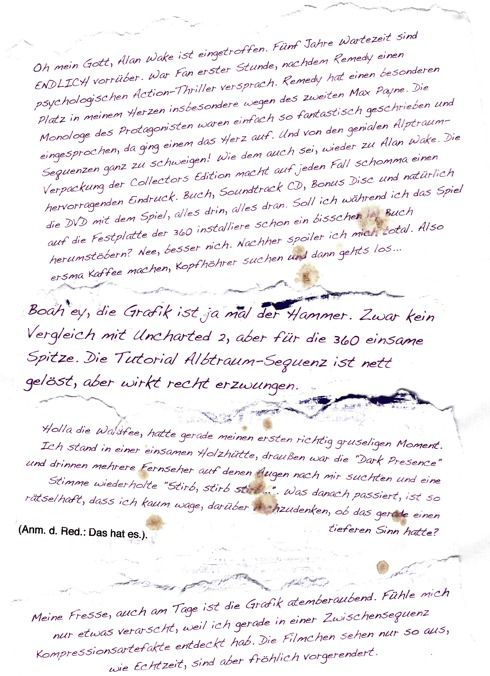 Oh mein Gott, Alan Wake ist eingetroffen. Fünf Jahre Wartezeit sind
ENDLICH vorrüber. War Fan erster Stunde, nachdem Remedy einen
psychologischen Action-Thriller versprach. Remedy hat einen besonderen
Platz in meinem Herzen insbesondere wegen des zweiten Max Payne. Die
Monologe des Protagonisten waren einfach so fantastisch geschrieben und
eingesprochen, da ging einem das Herz auf. Und von den genialen Alptraum-
Sequenzen ganz zu schweigen! Wie dem auch sei, wieder zu Alan Wake. Die
Verpackung der Collectors Edition macht auf jeden Fall schomma einen
hervorragenden Eindruck. Buch, Soundtrack CD, Bonus Disc und natürlich
die DVD mit dem Spiel, alles drin, alles dran. Soll ich während ich das Spiel
auf die Festplatte der 360 installiere schon ein bisschen im Buch
herumstöbern? Nee, besser nich. Nachher spoiler ich mich total. Also
ersma Kaffee machen, Kopfhöhrer suchen und dann gehts los...
Boah ey, die Grafik ist ja mal der Hammer. Zwar kein
Vergleich mit Uncharted 2, aber für die 360 einsame
Spitze. Die Tutorial Albtraum-Sequenz ist nett
gelöst, aber wirkt recht erzwungen.
Holla die Waldfee, hatte gerade meinen ersten richtig gruseligen Moment.
Ich stand in einer einsamen Holzhütte, draußen war die "Dark Presence"
und drinnen mehrere Fernseher auf denen Augen nach mir suchten und eine
Stimme wiederholte "Stirb, stirb Was danach passiert, ist so
rätselhaft, dass ich kaum wage, darüber ob das gerade einen
(Anm. d. Red.: Das hat es.). tieferen Sinn hatte?
Meine Fresse, auch am Tage ist die Grafik atemberaubend. Fühle mich
nur etwas verarscht, weil ich gerade in einer Zwischensequenz
Kompressionsartefakte entdeckt hab. Die Filmchen sehen nur so aus,
wie Echtzeit, sind aber fröhlich vorgerendert.